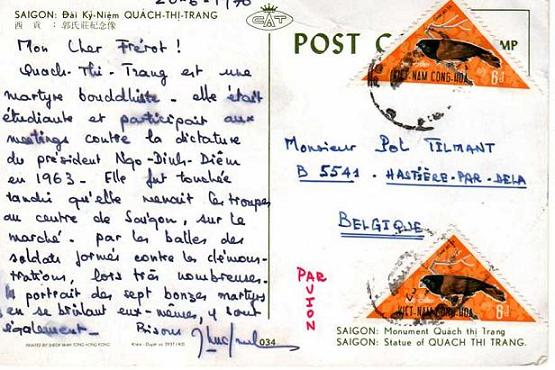 20-6-1970
SAIGON: Đài Kỷ-Niệm QUÁCH-THỊ-TRANG
西貢：郭氏莊紀念像
Mon Cher Frérot !
Quach-Thi-Trang est une
martyre bouddhiste - elle était
étudiante et participait aux
meetings contre la dictature
du président Ngo-Dinh-Diêm
en 1963. Elle fut touchée
tandis qu'elle menait les troupes
au centre de Saïgon, sur le
marché. par les balles des
soldats formés contre les démons-
trations, lors très nombreuses.
le portrait des sept bonzes martyrs
en se brûlant eux-mêmes, y sont
également_ Bisous
PRINTED BY HONG KONG
034
CAT
POST
MP
VIỆT-NAM CỘNG-HÒA
6đ
Monsieur Pol TILMANT
B 5541 - HASTIÈRE-PAR-DELA
BELGIQUE
PAR AVION
VIỆT-NAM CỘNG-HÒA
6đ
SAIGON: Monument Quách thị Trang
SAIGON: Statue of QUACH THI TRANG.